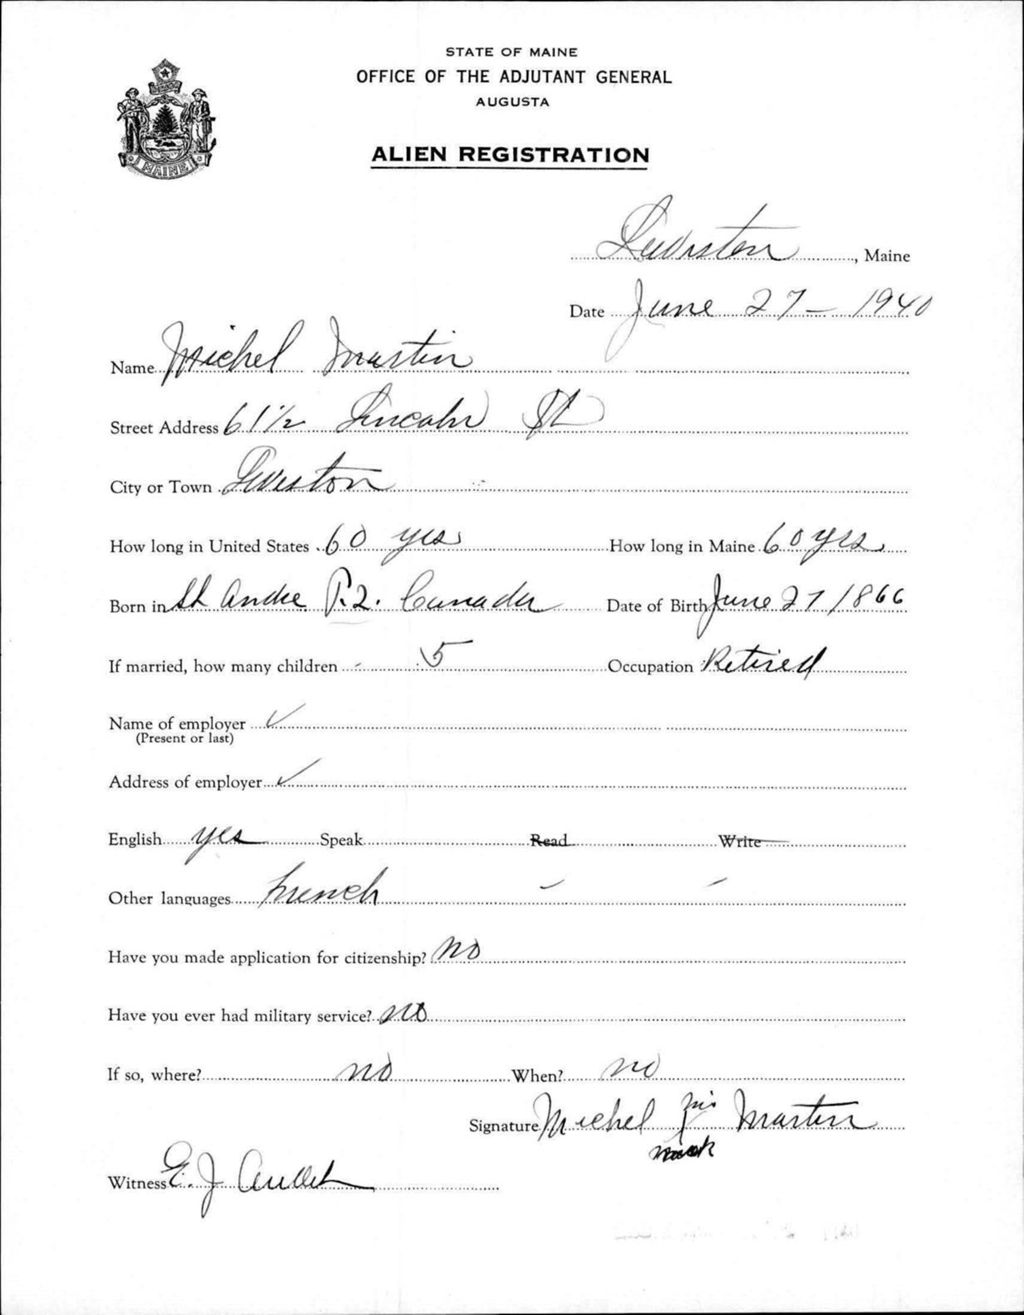 STATE OF MAINE
OFFICE OF THE ADJUTANT GENERAL
AUGUSTA
MAINE
ALIEN REGISTRATION
Lewiston, Maine
Date June 27 - 1940
Name Michel Martin
Street Address 61 1/2 Lincoln St
City or Town Lewiston
How long in United States 60 yrs How long in Maine 60 yrs
Born in St Andre P.Q. Canada Date of Birth June 27 1866
If married, how many children - 5 Occupation Retired
Name of employer ✓
(Present or last)
Address of employer ✓
English yes Speak Read Write
Other languages french - -
Have you made application for citizenship? no
Have you ever had military service? no
If so, where? no When? no
Signature Michel his Martin
mark
Witness E. J. Audet